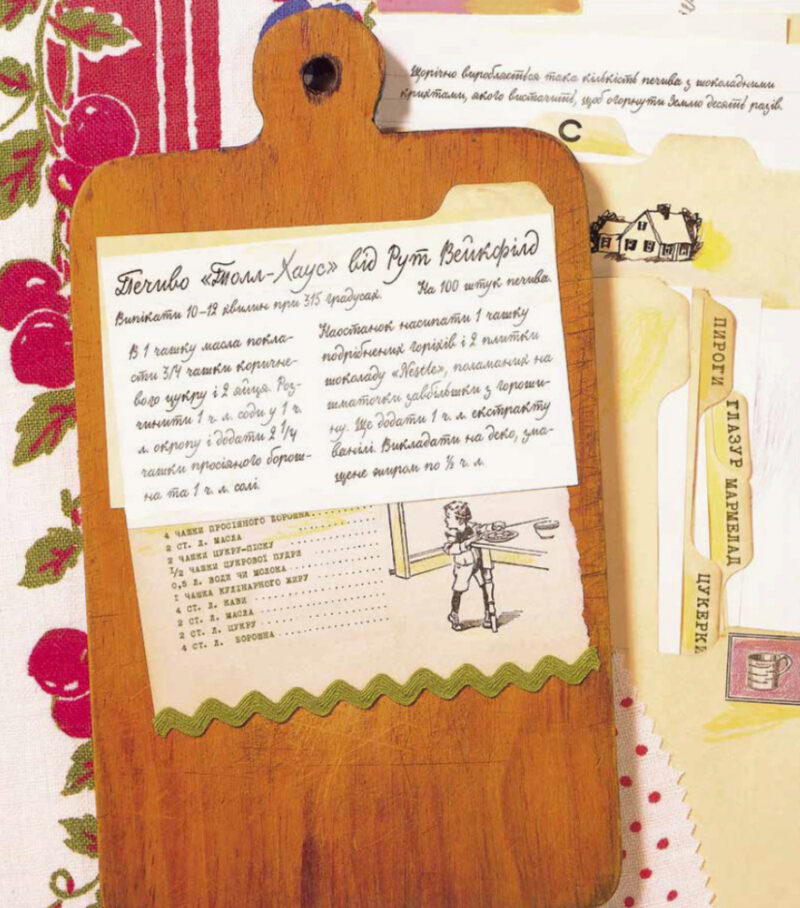 Щорічно виробляється така кількість печива з шоколадними
крихтами, якого вистачить, щоб огорнути Землю десять разів.
С
Печиво «Толл-Хаус» від Рут Вейкфілд
Випікати 10–12 хвилин при 315 градусах. На 100 штук печива.
В 1 чашку масла покла-
сти 3/4 чашки коричне-
вого цукру і 2 яйця. Роз-
чинити 1 ч. л. соди у 1 ч.
л. окропу і додати 2 1/4
чашки просіяного борош-
на та 1 ч. л. солі.
Наостанок насипати 1 чашку
подрібнених горіхів і 2 плитки
шоколаду «Nestle», поламаних на
шматочки завбільшки з гороши-
ну. Ще додати 1 ч. л. екстракту
ванілі. Викладати на деко, зма-
щене жиром по ½ ч. л.
4 ЧАШКИ ПРОСІЯНОГО БОРОШНА
2 СТ. Л. МАСЛА
2 ЧАШКИ ЦУКРУ-ПІСКУ
1/2 ЧАШКИ ЦУКРОВОЇ ПУДРИ
0,5 Л. ВОДИ ЧИ МОЛОКА
1 ЧАШКА КУЛІНАРНОГО ЖИРУ
4 СТ. Л. КАВИ
2 СТ. Л. МАСЛА
2 СТ. Л. ЦУКРУ
4 СТ. Л. БОРОШНА
ПИРОГИ
ГЛАЗУР
МАРМЕЛАД
ЦУКЕРКИ